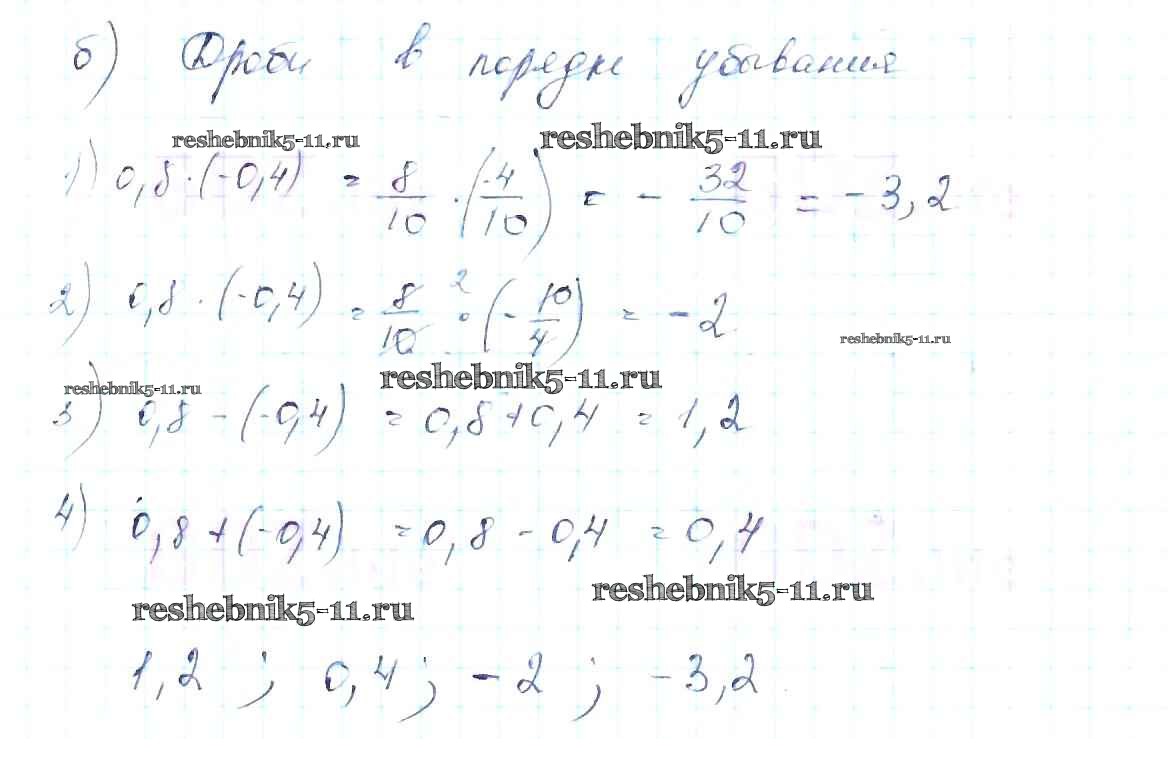 б) Дроби в порядке убывания
reshebnik5-11.ru reshebnik5-11.ru
1) 0,8·(-0,4) = 8/10 · (-4/10) = - 32/10 = -3,2
2) 0,8·(-0,4) = 8/10 2 · (-10/4) = -2
reshebnik5-11.ru
reshebnik5-11.ru reshebnik5-11.ru
3) 0,8 - (-0,4) = 0,8+0,4 = 1,2
4) 0,8 + (-0,4) = 0,8 - 0,4 = 0,4
reshebnik5-11.ru reshebnik5-11.ru
1,2 ; 0,4 ; -2 ; -3,2